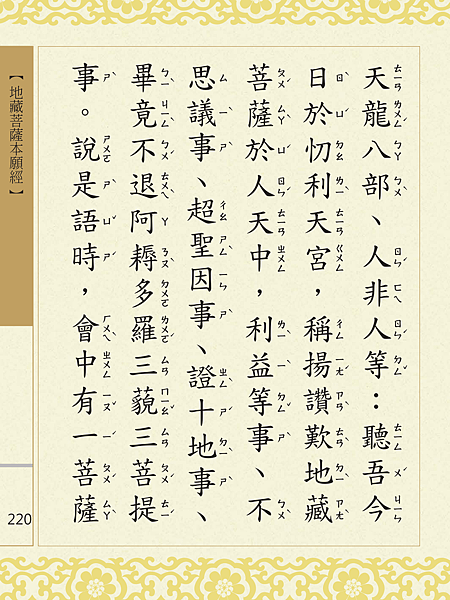 天龍八部、人非人等：聽吾今
日於忉利天宮，稱揚讚歎地藏
菩薩於人天中，利益等事、不
思議事、超聖因事、證十地事、
畢竟不退阿耨多羅三藐三菩提
事。說是語時，會中有一菩薩
【地藏菩薩本願經】
220